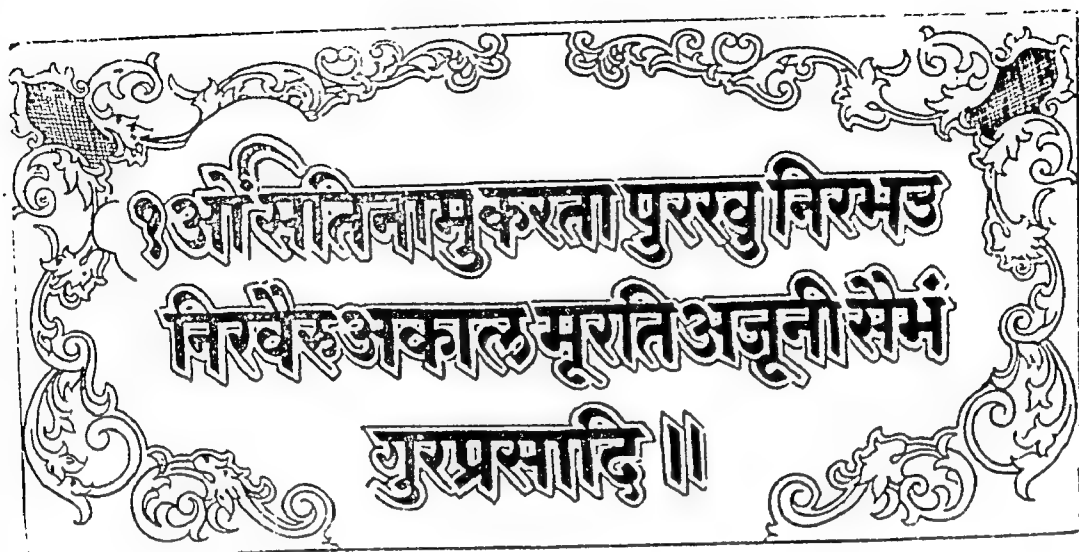 १ओं सतिनामु करता पुरखु निरभउ
निरवैरु अकाल मूरति अजूनी सैभं
गुरप्रसादि ॥